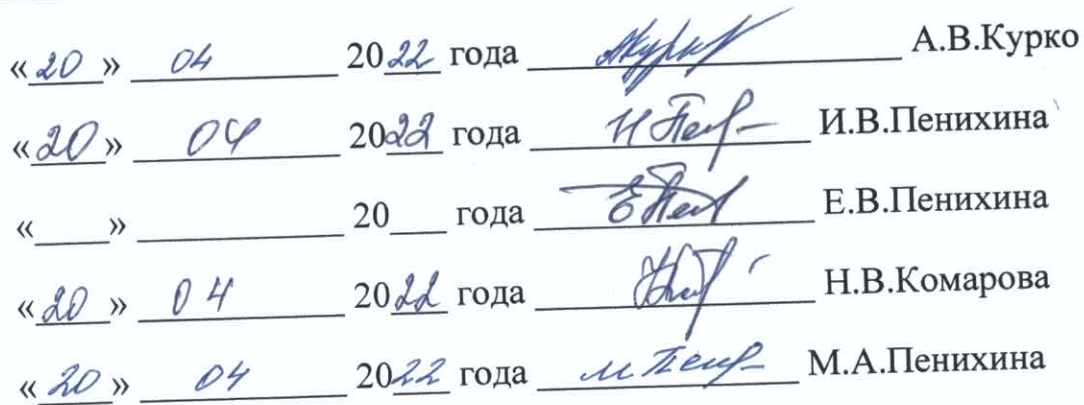 «20» 04 2022 года А.В.Курко
«20» 04 2022 года И.В.Пенихина
«____» ____________ 20____ года Е.В.Пенихина
«20» 04 2022 года Н.В.Комарова
«20» 04 2022 года М.А.Пенихина